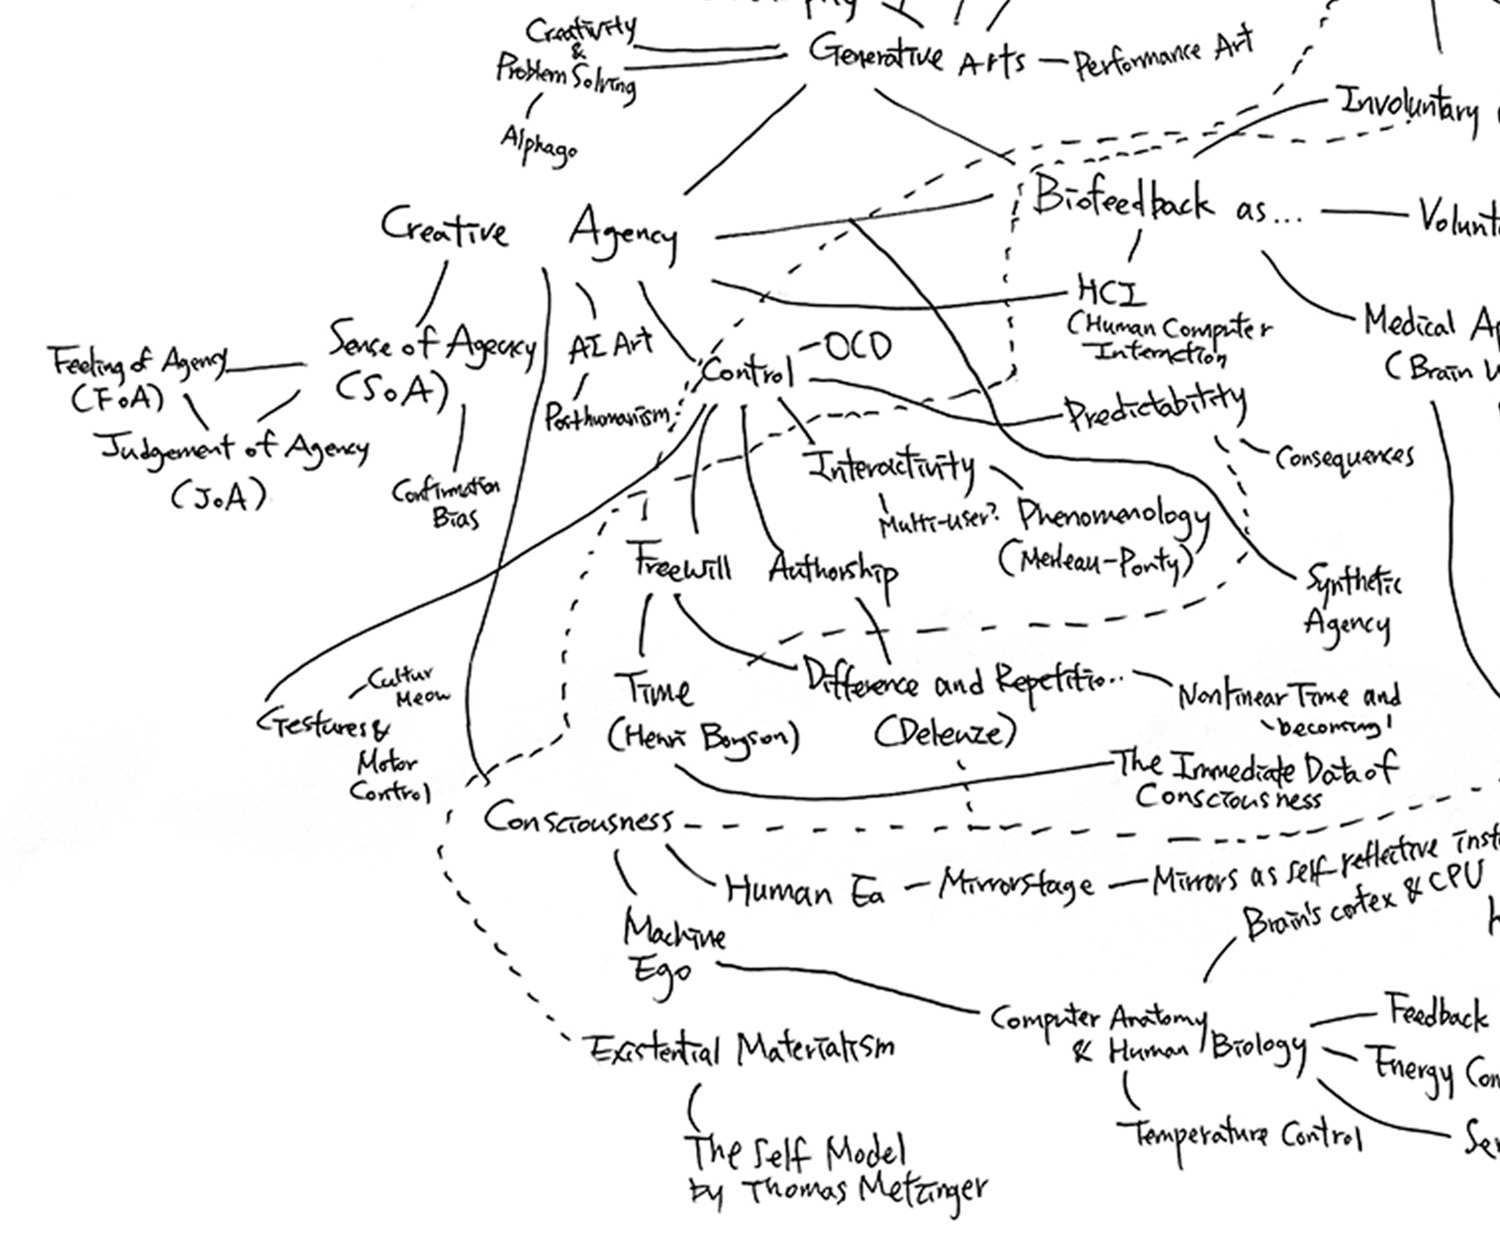 Creativity
&
Problem Solving
Alphago
Generative Arts
Performance Art
Involuntary
Creative Agency
Biofeedback as...
HCI
(Human Computer
Interaction
Medical
(Brain
Feeling of Agency
(FoA)
Sense of Agency
(SoA)
Judgement of Agency
(JoA)
Confirmation
Bias
AI Art
Posthumanism
Control
OCD
Predictability
Consequences
Interactivity
Multi-user?
Phenomenology
(Merleau-Ponty)
Freewill
Authorship
Synthetic
Agency
Gestures &
Motor
Control
Time
Difference and Repetitio..
(Deleuze)
Nonlinear Time and
becoming!
The Immediate Data of
Consciousness
Consciousness
Human
Mirrorstage
Mirrors as self-reflective
Brain's cortex & CPU
Machine
Ego
Computer Anatomy
& Human Biology
Feedback
Energy
Temperature Control
Existential Materialism
The Self Model
by Thomas Metzinger